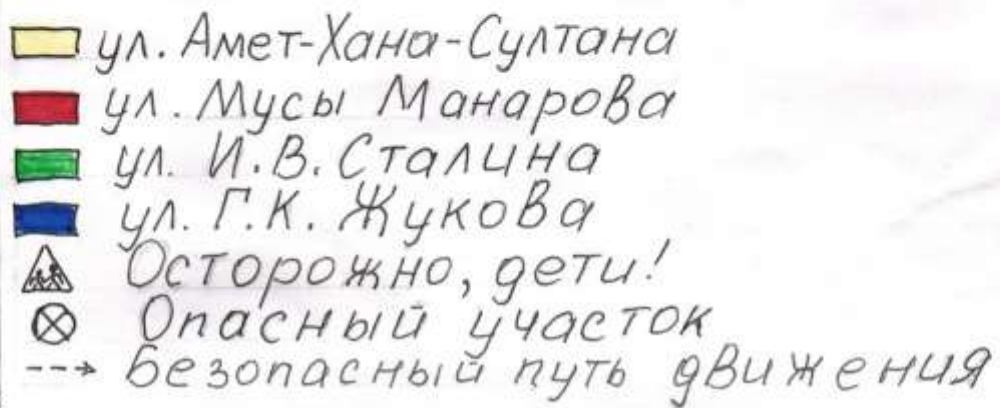 ул. Амет-Хана-Султана
ул. Мусы Манарова
ул. И.В. Сталина
ул. Г.К. Жукова
Осторожно, дети!
Опасный участок
Безопасный путь движения